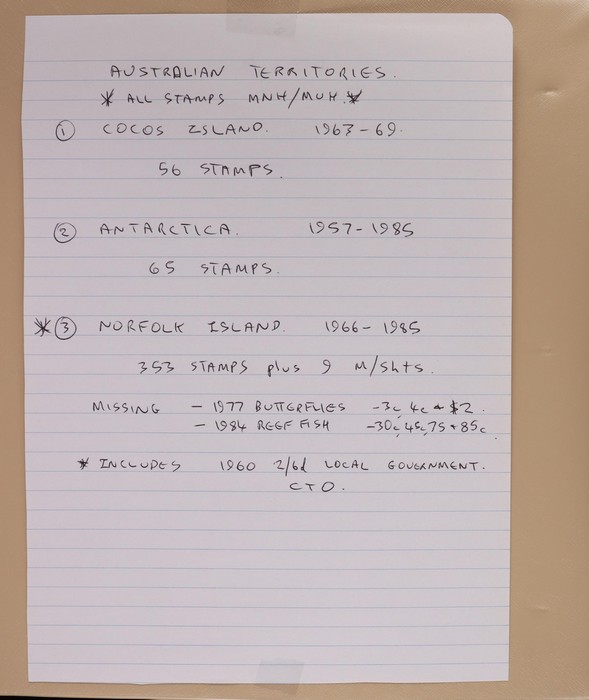 AUSTRALIAN TERRITORIES.
* ALL STAMPS MNH/MUH. *
① COCOS ISLAND. 1963-69.
56 STAMPS.
② ANTARCTICA. 1957-1985
65 STAMPS.
* ③ NORFOLK ISLAND. 1966-1985
353 STAMPS plus 9 M/Shts.
MISSING - 1977 BUTTERFLIES -3c, 4c & $2.
- 1984 REEF FISH -30c, 45c, 75 + 85c
* INCLUDES 1960 2/6d LOCAL GOVERNMENT.
CTO.